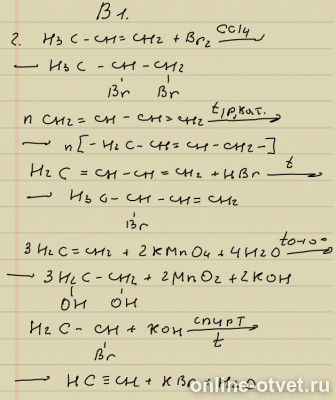 В 1.
2. H3C-CH=CH2 + Br2 CCl4
— H3C - CH - CH2
Br Br
n CH2 = CH - CH = CH2 t,p,кат.
— n[-H2C-CH=CH-CH2-]
H2C=CH-CH=CH2 + HBr t
— H3C-CH-CH=CH2
Br
3H2C=CH2 + 2KMnO4 + 4H2O t0-10°
— 3H2C-CH2 + 2MnO2 + 2KOH
OH OH
H2C-CH + KOH спирт
Br t
— HC≡CH + KBr + H2O
online-otvet.ru